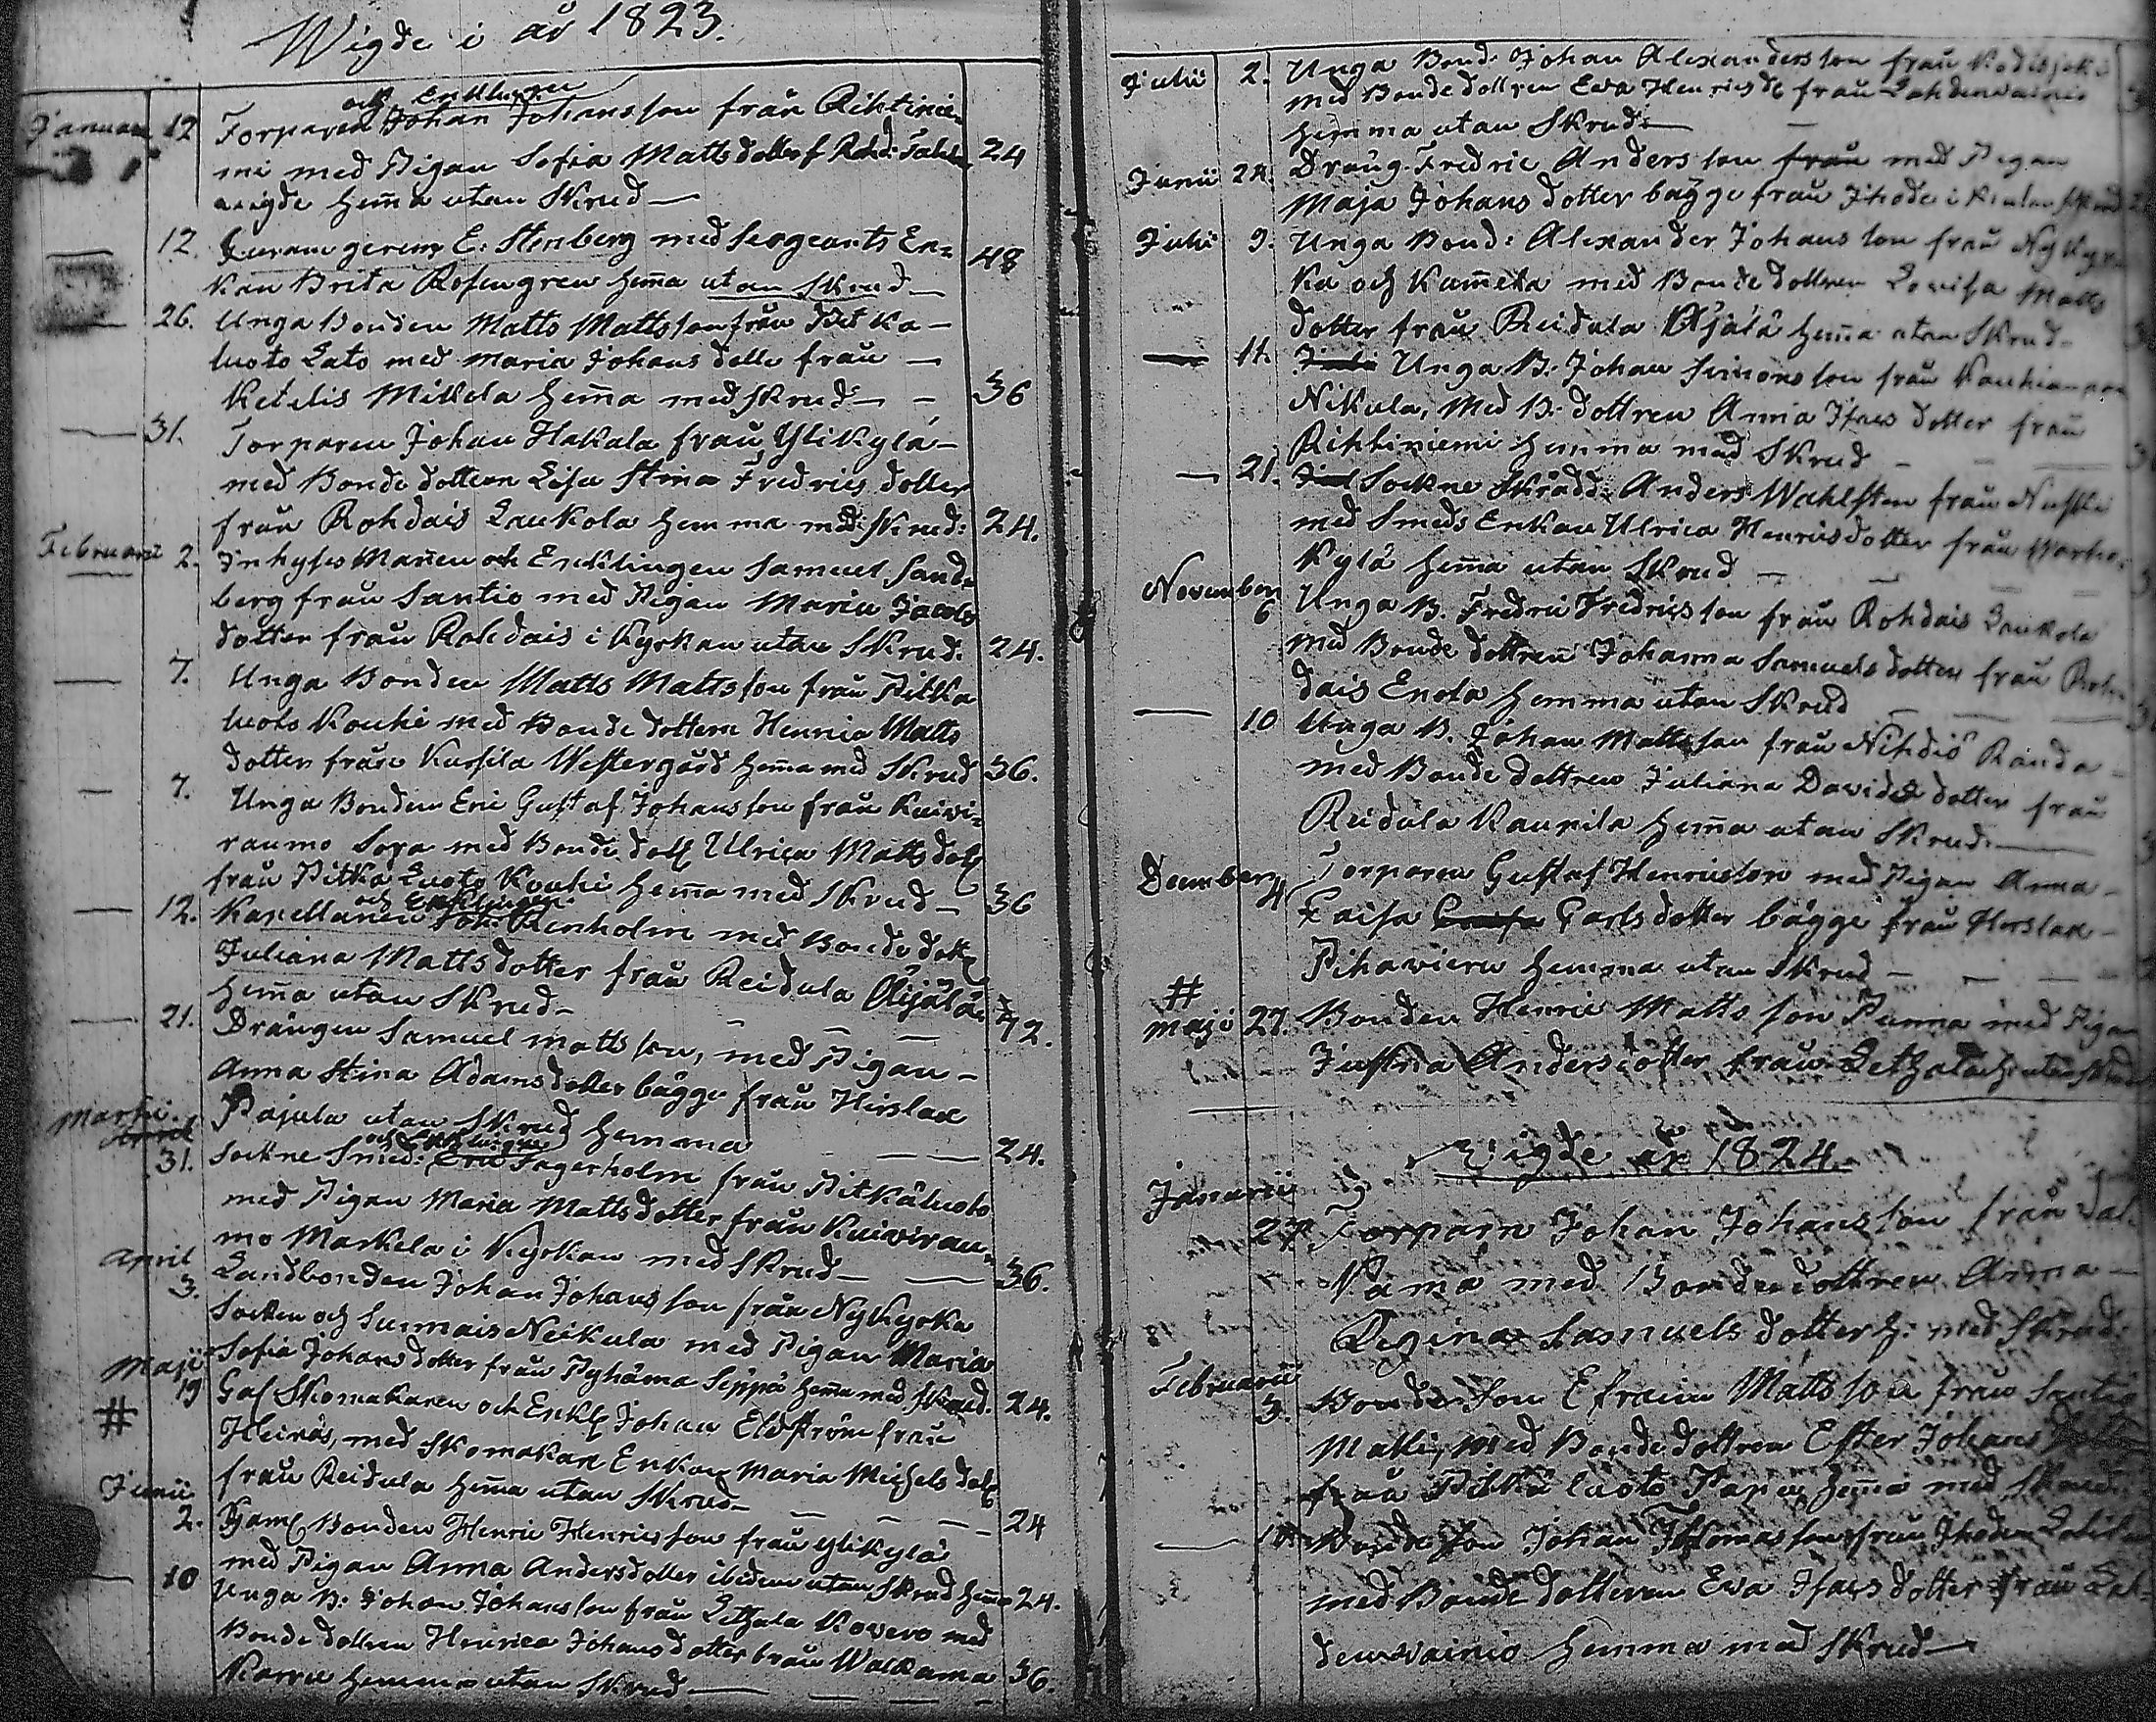 Wigde i år 1823.
och Enklingen
Januari 12 Torparen Johan Johansson från Rihtinie-
mi med Pigan Sofia Matts dotter f Rohd: 24
wigde hem̄a utan Skrud
12. E. Stenberg med Sergeants En= 48
kan Brita Rosengren hem̄a utan Skrud
26. Unga Bonden Matts Mattsson från Pitkä-
luoto Lato med Maria Johans dotter från
Ketelis Mikola hem̄a med Skrud 36
31. Torparen Johan Hakala från Ylikylä
med Bonde dottren Lisa Stina Fredrics dotter
från Rohdais Laukola hemma med Skrud: 24.
Februari 2. Inhyses Man̄en och Enklingen Samuel Sand=
berg från Santio med Pigan Maria Jacobs
dotter från Rohdais i Kyrkan utan Skrud. 24.
7. Unga Bonden Matts Mattsson från Pitkä
luoto Kouhi med Bonde dottern Henrica Matts
dotter från Kursila Westergård hem̄a med Skrud 36.
7. Unga Bonden Eric Gustaf Johansson från Kuivi=
raumo Sora med Bonde dott Ulrica Matts dott
från Pitkä Luoto Kouhi hem̄a med Skrud 36
och Enklingen
12. Kapellanen Joh. Renholm med Bonde dott
Juliana Matts dotter från Reidula Äijälä
hem̄a utan Skrud 72.
21. Drängen Samuel Mattsson, med Pigan
Anna Stina Adams dotter bägge från Hirslax
Pajula utan Skrud hemma 24.
Martii April
och Enklingen
31. Sockne Smed: Eric Fagerholm från Pitkäluoto
med Pigan Maria Matts dotter från Kuivirau=
mo Markela i Kyrkan med Skrud 36.
April 3. Landbonden Johan Johansson från Nykyrka
Socken och Sunnais Neikula med Pigan Maria
Sofia Johans dotter från Pyhäma Seppä hem̄a med Skrud. 24.
Maji 19 Gaf Skomakaren och Enkl Johan Eldström från
# Heinäs, med Skomakar Enkan Maria Michels dott
från Reidula hem̄a utan Skrud 24
Junii 2. Gaml Bonden Henric Henricsson från Ylikylä
med Pigan Anna Anders dotter ibidem utan Skrud hem̄a 24.
10 Unga B: Johan Johansson från Letzala Kovero med
Bonde dottren Henrica Johans dotter från Walkama
Karru hemma utan Skrud 36.
Julii 2. Unga Bond: Johan Alexandersson från Kodisjoki
med Bonde dottren Eva Henricsd från Lahdenvainio
hemma utan Skrud
Junii 24. Dräng Fredric Andersson från med Pigan
Maja Johans dotter bägge från Ihode i K utan Skrud
Julii 9. Unga Bond: Alexander Johansson från Nykyr
ka och Kam̄ela med Bonde dottren Lovisa Matts
dotter från Reidula Äijälä hem̄a utan Skrud
11. Juli Unga B. Johan Simonsson från Kauhianpää
Nikula, med B. dottren Anna Isacs dotter från
Rihtiniemi hemma med Skrud
21. Jul Sockne Skrädd: Anders Wahlsten från
med Smeds Enkan Ulrica Henricsdotter från Warho
kylä hem̄a utan Skrud
November 6 Unga B. Fredric Fredricsson från Rohdais Laukola
med Bonde dottren Johanna Samuels dotter från Roh
dais Enola hemma utan Skrud
10 Unga B. Johan Mattsson från Nihdiö Randa
med Bonde dottren Juliana Davids dotter från
Reidula Kaurila hem̄a utan Skrud
December 4 Torparen Gustaf Henricsson med Pigan Anna
Caisa Caisa Carls dotter bägge från Hirslax
Pihavieru hemma utan Skrud
#
Maji 27. Bonden Henric Mattsson Punna med Pigan
Justina Andersdotter från Letzala h: utan Skrud
Wigde år 1824.
Januarii 27 Torparn Johan Johansson från
Vama med Bonde dottren Anna
Regina Samuels dotter h: med Skrud.
Februarii 3. Bonde Son Efraim Mattsson från Santio
Matti, med Bonde dottren Ester Johans
från Pitkä luoto Papu hem̄a med Skrud:
Bonde Son Johan Thomasson från Ihoden
med Bonde dottren Eva Isacs dotter från Lah
denvainio hemma med Skrud